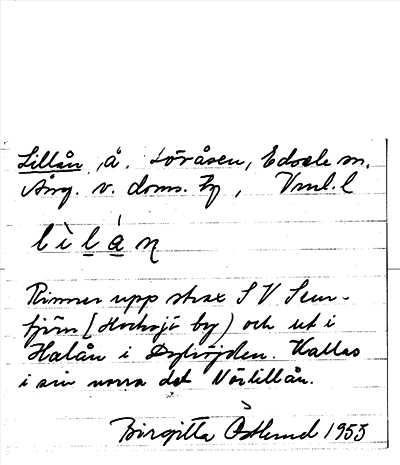 Lillån, å. Löråsen, Edsele sn.
Ång. v. doms. by, Vml.l
lìlán
Rinner upp strax S V
[Hocksjö by) och ut i
Halån i. Kallas
i sin norra del Nörlillån.
Birgitta Östlund 1953